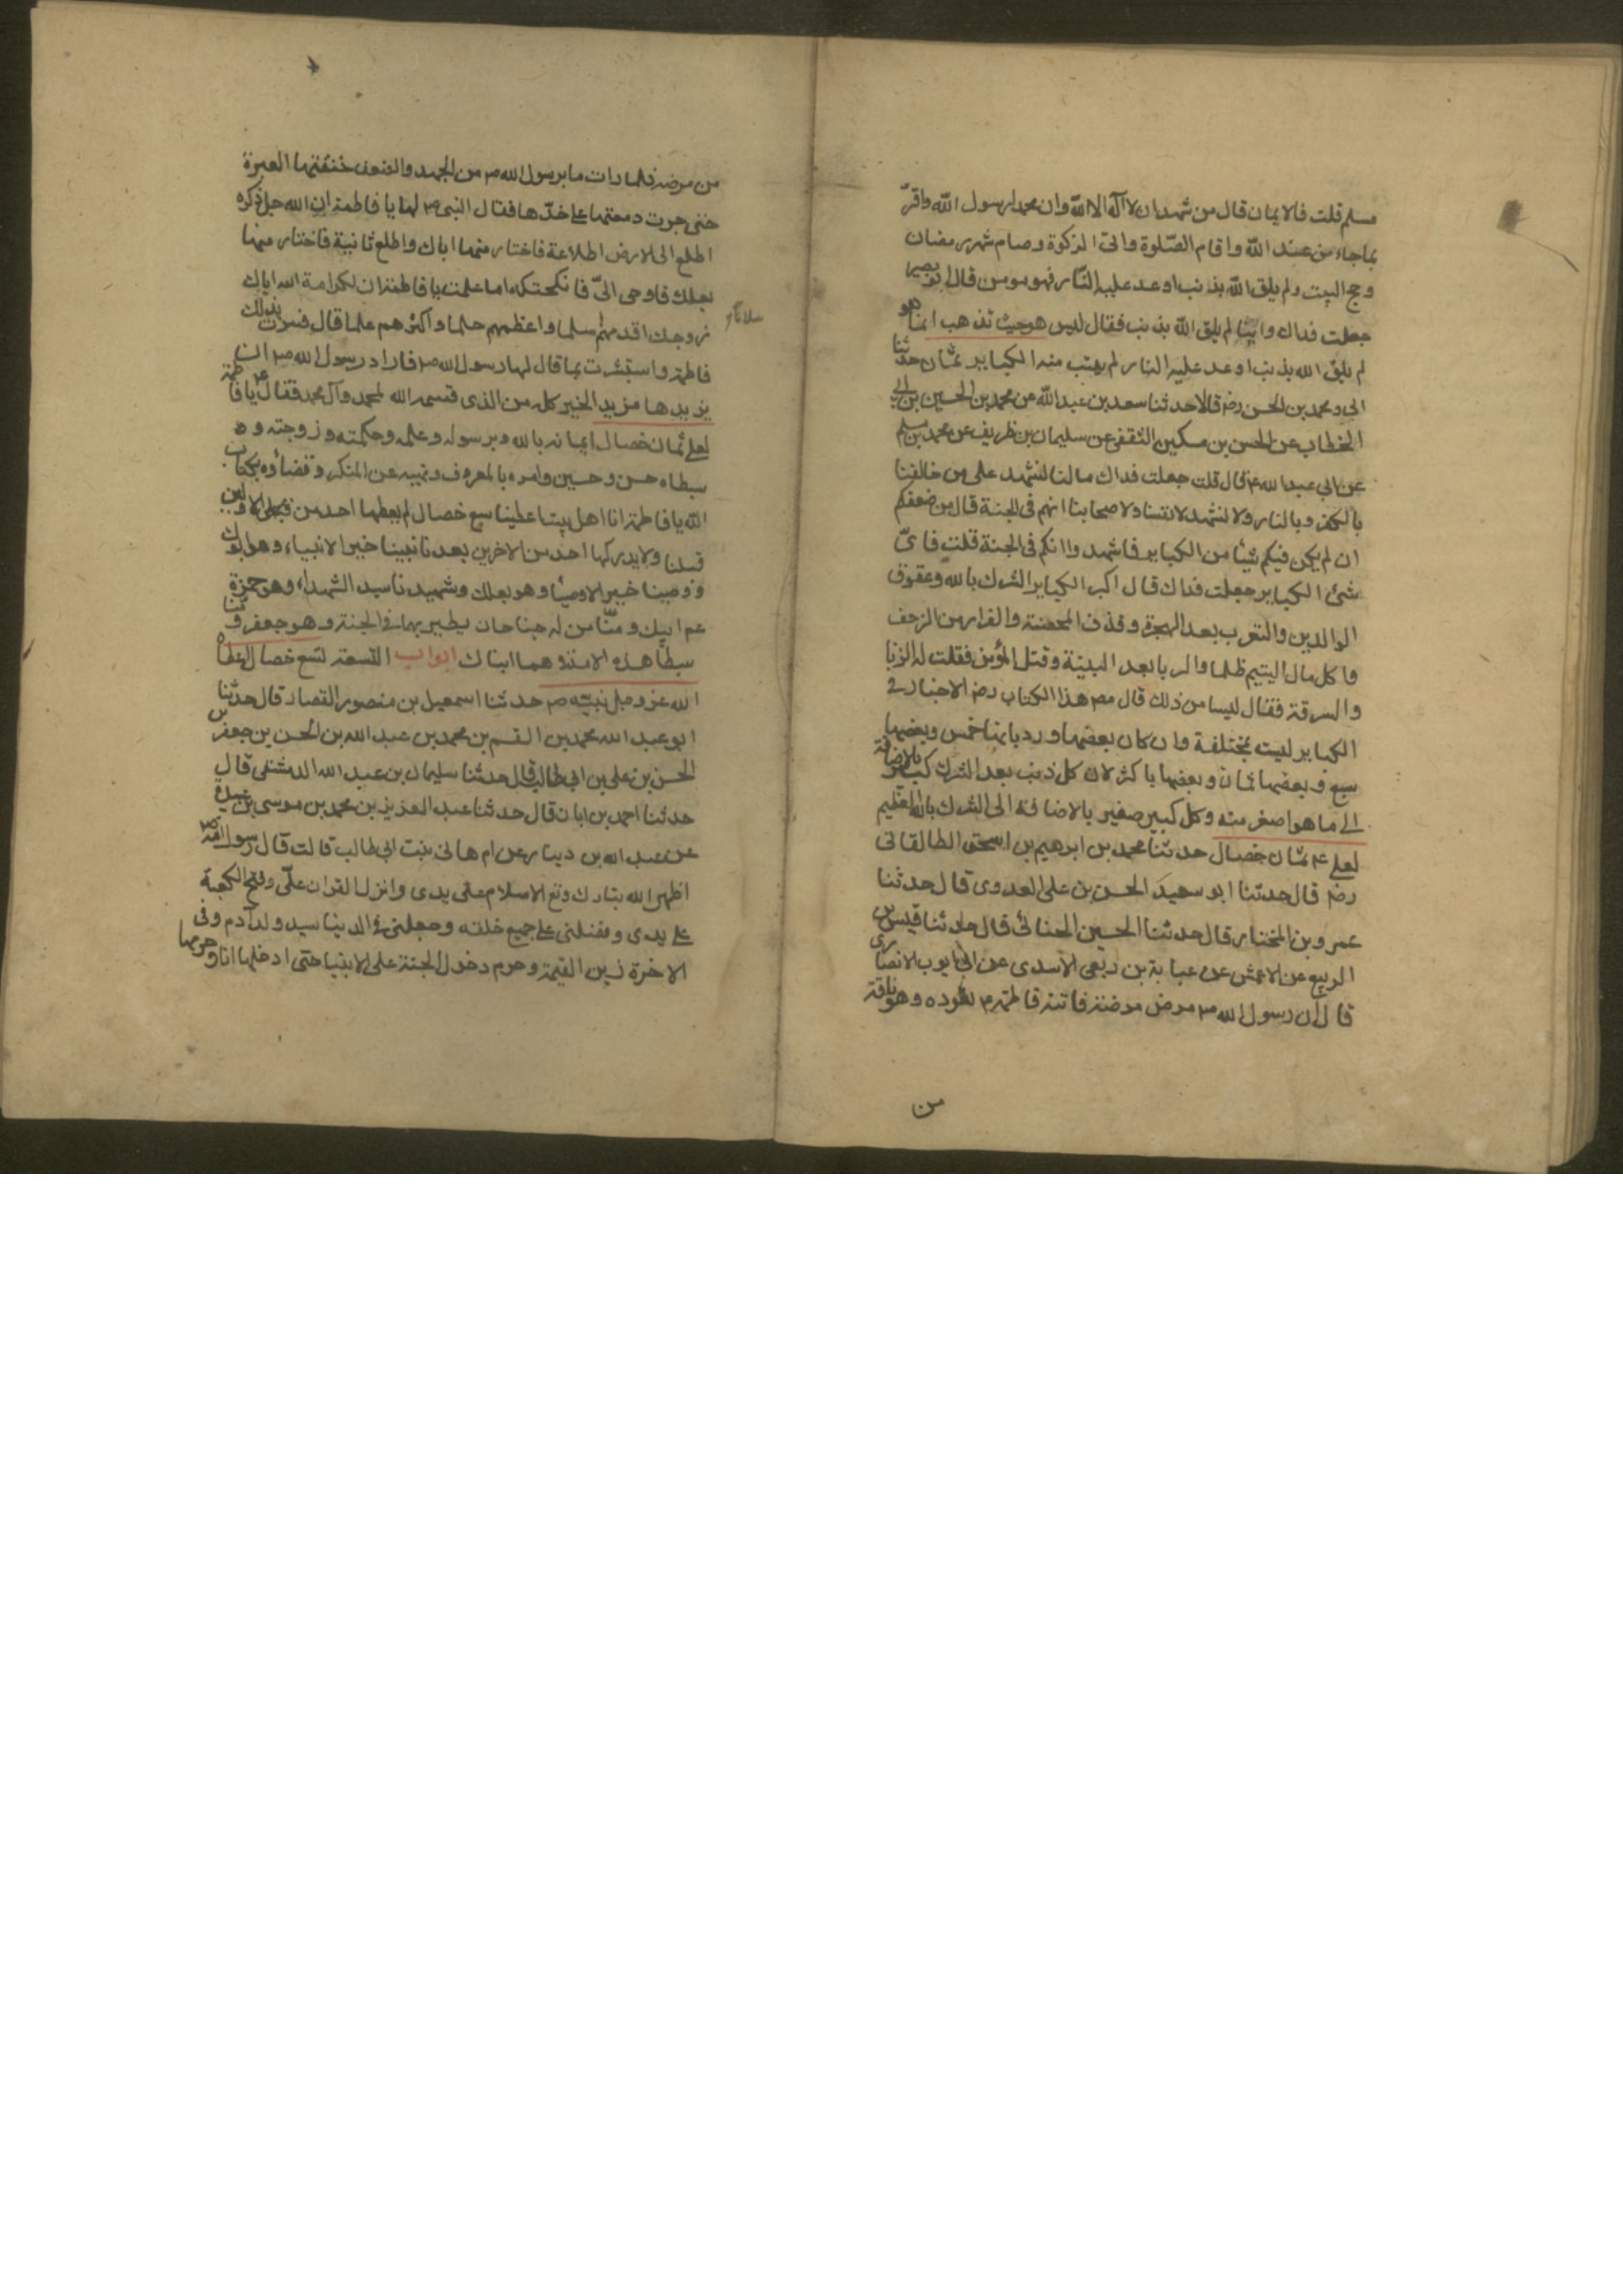 مسلم قلت فالايمان قال من شهد ان لا اله الا الله وان محمدا رسول الله واقر
بما جاء من عند الله واقام الصلوة واتى الزكوة وصام شهر رمضان
وحج البيت ولم يلق الله بذنب اوعد عليه النار فهو مومن قال ابو بصير
جعلت فداك واينا لم يلق الله بذنب فقال ليس هو حيث تذهب انما هو
لم يلق الله بذنب اوعد عليه النار لم يتب منه الكباير ثمان حدثنا
ابي ومحمد بن الحسن رضه قالا حدثنا سعد بن عبد الله عن محمد بن الحسين بن ابي
الخطاب عن الحسن بن مسكين الثقفى عن سليمان بن ظريف عن محمد بن مسلم
عن ابي عبد الله ع قال قلت جعلت فداك ما لنا نشهد على من خالفنا
بالكفر وبالنار ولا نشهد لانفسنا ولاصحابنا انهم في الجنة قال من ضعفكم
ان لم يكن فيكم شيئا من الكباير فاشهدوا انكم في الجنة قلت فاى
شئ الكباير جعلت فداك قال اكبر الكباير الشرك بالله وعقوق
الوالدين والتعرب بعد الهجرة وقذف المحصنة والفرار من الزحف
واكل مال اليتيم ظلما والربا بعد البينة وقتل المؤمن فقلت له الزنا
والسرقة فقال ليسا من ذلك قال مص هذا الكتاب رضه الاخبار في
الكباير ليست بمختلفة وان كان بعضها ورد بانها خمس وبعضها
سبع وبعضها ثمان وبعضها باكثر لان كل ذنب بعد الشرك كبير بالاضافة
الى ما هو اصغر منه وكل كبير صغير بالاضافة الى الشرك بالله العظيم
لعلى ع ثمان خصال حدثنا محمد بن ابرهيم بن اسحق الطالقانى
رضه قال حدثنا ابو سعيد الحسن بن على العدوى قال حدثنا
عمرو بن المختار قال حدثنا الحسين الحنائى قال حدثنا قيس بن
الربيع عن الاعمش عن عباية بن ربعى الاسدى عن ابي ايوب الانصارى
قال ان رسول الله ص مرض مرضته فاتته فاطمة ع تعوده وهو ناقة
من
من مرضه فلما رات ما برسول الله ص من الجهد والضعف خنقتها العبرة
حتى جرت دمعتها على خدها فقال النبي ص لها يا فاطمة ان الله جل ذكره
اطلع الى الارض اطلاعة فاختار منها اباك واطلع ثانية فاختار منها
بعلك فاوحى الى فانكحتكه اما علمت يا فاطمة ان لكرامة الله اياك
زوجك اقدمهم سلما واعظمهم حلما واكثرهم علما قال فسرت بذلك
فاطمة واستبشرت بما قال لها رسول الله ص فاراد رسول الله ص ان
يزيدها مزيد الخير كله من الذى قسمه الله لمحمد وآل محمد فقال يا فاطمة
لعلى ثمان خصال ايمانه بالله وبرسوله وعلمه وحكمته وزوجته و
سبطاه حسن وحسين وامره بالمعروف ونهيه عن المنكر وقضاؤه بكتاب
الله يا فاطمة انا اهل بيت اعطينا سبع خصال لم يعطها احد من الاولين
قبلنا ولا يدركها احد من الاخرين بعدنا نبينا خير الانبياء وهو ابوك
ووصينا خير الاوصيا وهو بعلك وشهيدنا سيد الشهداء وهو حمزة
عم ابيك ومنا من له جناحان يطير بهما في الجنة وهو جعفر ومنا
سبطا هذه الامة وهما ابناك ابواب التسعة لتسع خصال اعطاه
الله عز وجل نبيه ص حدثنا اسمعيل بن منصور القصار قال حدثنا
ابو عبد الله محمد بن القسم بن محمد بن عبد الله بن الحسن بن جعفر بن
الحسن بن على بن ابي طالب قال حدثنا سليمان بن عبد الله الدمشقى قال
حدثنا احمد بن ابان قال حدثنا عبد العزيز بن محمد بن موسى بن عبيدة
عن عبد الله بن دينار عن ام هانى بنت ابي طالب قالت قال رسول الله ص
اظهر الله تبارك وتع الاسلام على يدى وانزل القران على وفتح الكعبة
على يدى وفضلنى على جميع خلقه وجعلنى في الدنيا سيد ولد آدم وفى
الاخرة زين القيمة وحرم دخول الجنة على الانبيا حتى ادخلها انا وحرمها